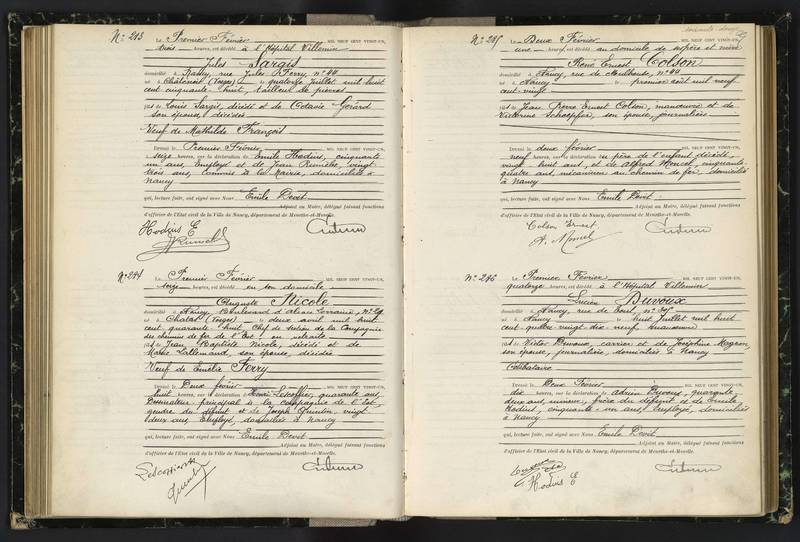 N° 243 Le Premier Février MIL NEUF CENT VINGT-UN,
trois heures, est décédé à l'Hôpital Villemin
Jules Sargis
domicilié à Nancy, rue Jules Ferry, n° 44
né à Châtenois (Vosges) le quatorze Juillet mil huit
cent cinquante huit, tailleur de pierres
fils de Louis Sargis, décédé et de Octavie Gérard
son épouse, décédée
Veuf de Mathilde François
Dressé le Premier Février MIL NEUF CENT VINGT-UN,
seize heures, sur la déclaration de Emile Hodins, cinquante
un ans, Employé et de Jean, vingt
trois ans, Commis à la Mairie, domiciliés à
Nancy
qui, lecture faite, ont signé avec Nous Emile Devit
Adjoint au Maire, délégué faisant fonctions
d'officier de l'Etat civil de la Ville de Nancy, département de Meurthe-et-Moselle.
Hodins E
N° 244 Le Premier Février MIL NEUF CENT VINGT-UN,
seize heures, est décédé en son domicile
Auguste Nicole
domicilié à Nancy, Boulevard d'Alsace Lorraine,
né à Chatas (Vosges) le deux avril mil huit
cent quarante huit, Chef de section de la Compagnie
des chemins de fer de l'Est, en retraite
fils de Jean Baptiste Nicole, décédé et de
Marie Lallemand, son épouse, décédée
Veuf de Emélie Ferry
Dressé le Deux février MIL NEUF CENT VINGT-UN,
huit heures, sur la déclaration de, quarante ans,
Dessinateur principal à la compagnie de l'Est
gendre du défunt et de Joseph Quentin, vingt
deux ans, Employé, domiciliés à Nancy
qui, lecture faite, ont signé avec Nous Emile Devit
Adjoint au Maire, délégué faisant fonctions
d'officier de l'Etat civil de la Ville de Nancy, département de Meurthe-et-Moselle.
N° 245 Le Deux Février MIL NEUF CENT VINGT-UN,
une heures, est décédé au domicile de ses père et mère
René Ernest Colson
domicilié à Nancy, rue de Meurthe, n° 44
né à Nancy le premier août mil neuf
cent vingt
fils de Jean Pierre Ernest Colson, manœuvre et de
Victorine Schoepfer, son épouse, journalière
Dressé le deux février MIL NEUF CENT VINGT-UN,
neuf heures, sur la déclaration du père de l'enfant décédé,
vingt huit ans, et de Alfred Moncel, cinquante
quatre ans, mécanicien au chemin de fer, domicilié
à Nancy
qui, lecture faite, ont signé avec Nous Emile Devit
Adjoint au Maire, délégué faisant fonctions
d'officier de l'Etat civil de la Ville de Nancy, département de Meurthe-et-Moselle.
Colson Ernest
A. Moncel
N° 246 Le Premier Février MIL NEUF CENT VINGT-UN,
quatorze heures, est décédé à l'Hôpital Villemin
Lucien Duvoux
domicilié à Nancy, rue de Toul,
né à Nancy le huit Juillet mil huit
cent quatre vingt dix neuf,
fils de Victor Duvoux, carrier et de Joséphine Magron,
son épouse, journalière, domiciliés à Nancy
Célibataire
Dressé le Deux Février MIL NEUF CENT VINGT-UN,
dix heures, sur la déclaration de Adrien Duvoux, quarante
deux ans, mineur, frère du défunt et de Emile
Hodins, cinquante un ans, Employé, domiciliés
à Nancy
qui, lecture faite, ont signé avec Nous Emile Devit
Adjoint au Maire, délégué faisant fonctions
d'officier de l'Etat civil de la Ville de Nancy, département de Meurthe-et-Moselle.
Hodins E